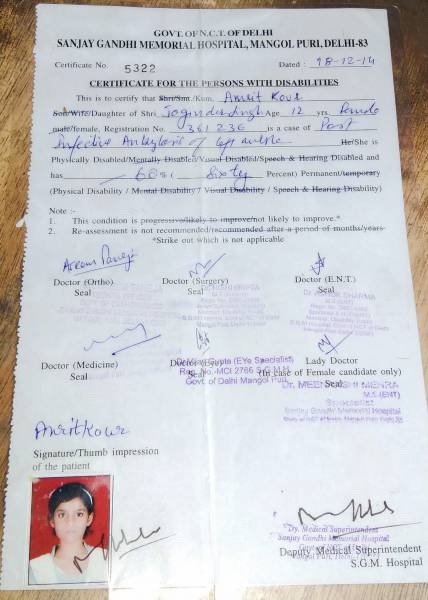 GOVT. OF N.C.T. OF DELHI
SANJAY GANDHI MEMORIAL HOSPITAL, MANGOL PURI, DELHI-83
Certificate No. 5322 Dated : 18-12-14
CERTIFICATE FOR THE PERSONS WITH DISABILITIES
This is to certify that Shri/Smt./Kum. Amrit Kour
Son/Wife/Daughter of Shri Joginder Singh Age 12 yrs.
male/female, Registration No. 361236 is a case of Post
Infective Ankylosis of left He/She is
Physically Disabled/Mentally Disabled/Visual Disabled/Speech & Hearing Disabled and
has 60 % ( Sixty Percent) Permanent/temporary
(Physical Disability / Mental Disability / Visual Disability / Speech & Hearing Disability)
Note :-
1. This condition is progressive/likely to improve/not likely to improve.*
2. Re-assessment is not recommended/recommended after a period of months/years
*Strike out which is not applicable
Doctor (Ortho) Doctor (Surgery) Doctor (E.N.T.)
Seal Seal Seal
Doctor (Medicine) Doctor (Eye) Lady Doctor
Seal Seal (In case of Female candidate only)
Seal
Gupte (EYe Specialist)
Reg. No.-MCI 2766 S.G.M.H.
Govt. of Delhi Mangol Puri
M.S.(ENT)
Sanjay Gandhi Memorial Hospital
Amrit Kour
Signature/Thumb impression
of the patient
Dy. Medical Superintendent
Sanjay Gandhi Memorial Hospital
Deputy Medical Superintendent
S.G.M. Hospital